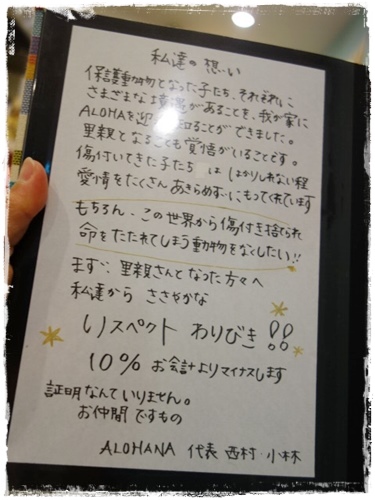 私達の想い
保護動物となった子たち、それぞれに
さまざまな境遇があることを、我が家に
ALOHAを迎 知ることができました。
里親となることも覚悟がいることです。
傷付いてきた子たち は はかりしれない程
愛情をたくさんあきらめずにもってくれています
もちろん、この世界から傷付き捨てられ
命をたたれてしまう動物をなくしたい!!
まず、里親さんとなった方々へ
私達から ささやかな
リスペクト わりびき!!
10% お会計よりマイナスします
証明なんていりません。
お仲間ですもの
ALOHANA 代表 西村・小林